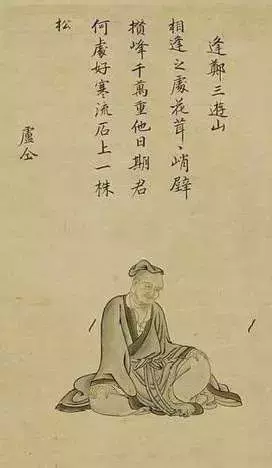 逢鄭三遊山
相逢之處花茸〻峭壁
攢峰千萬重他日期君
何處好寒流石上一株
松
盧仝